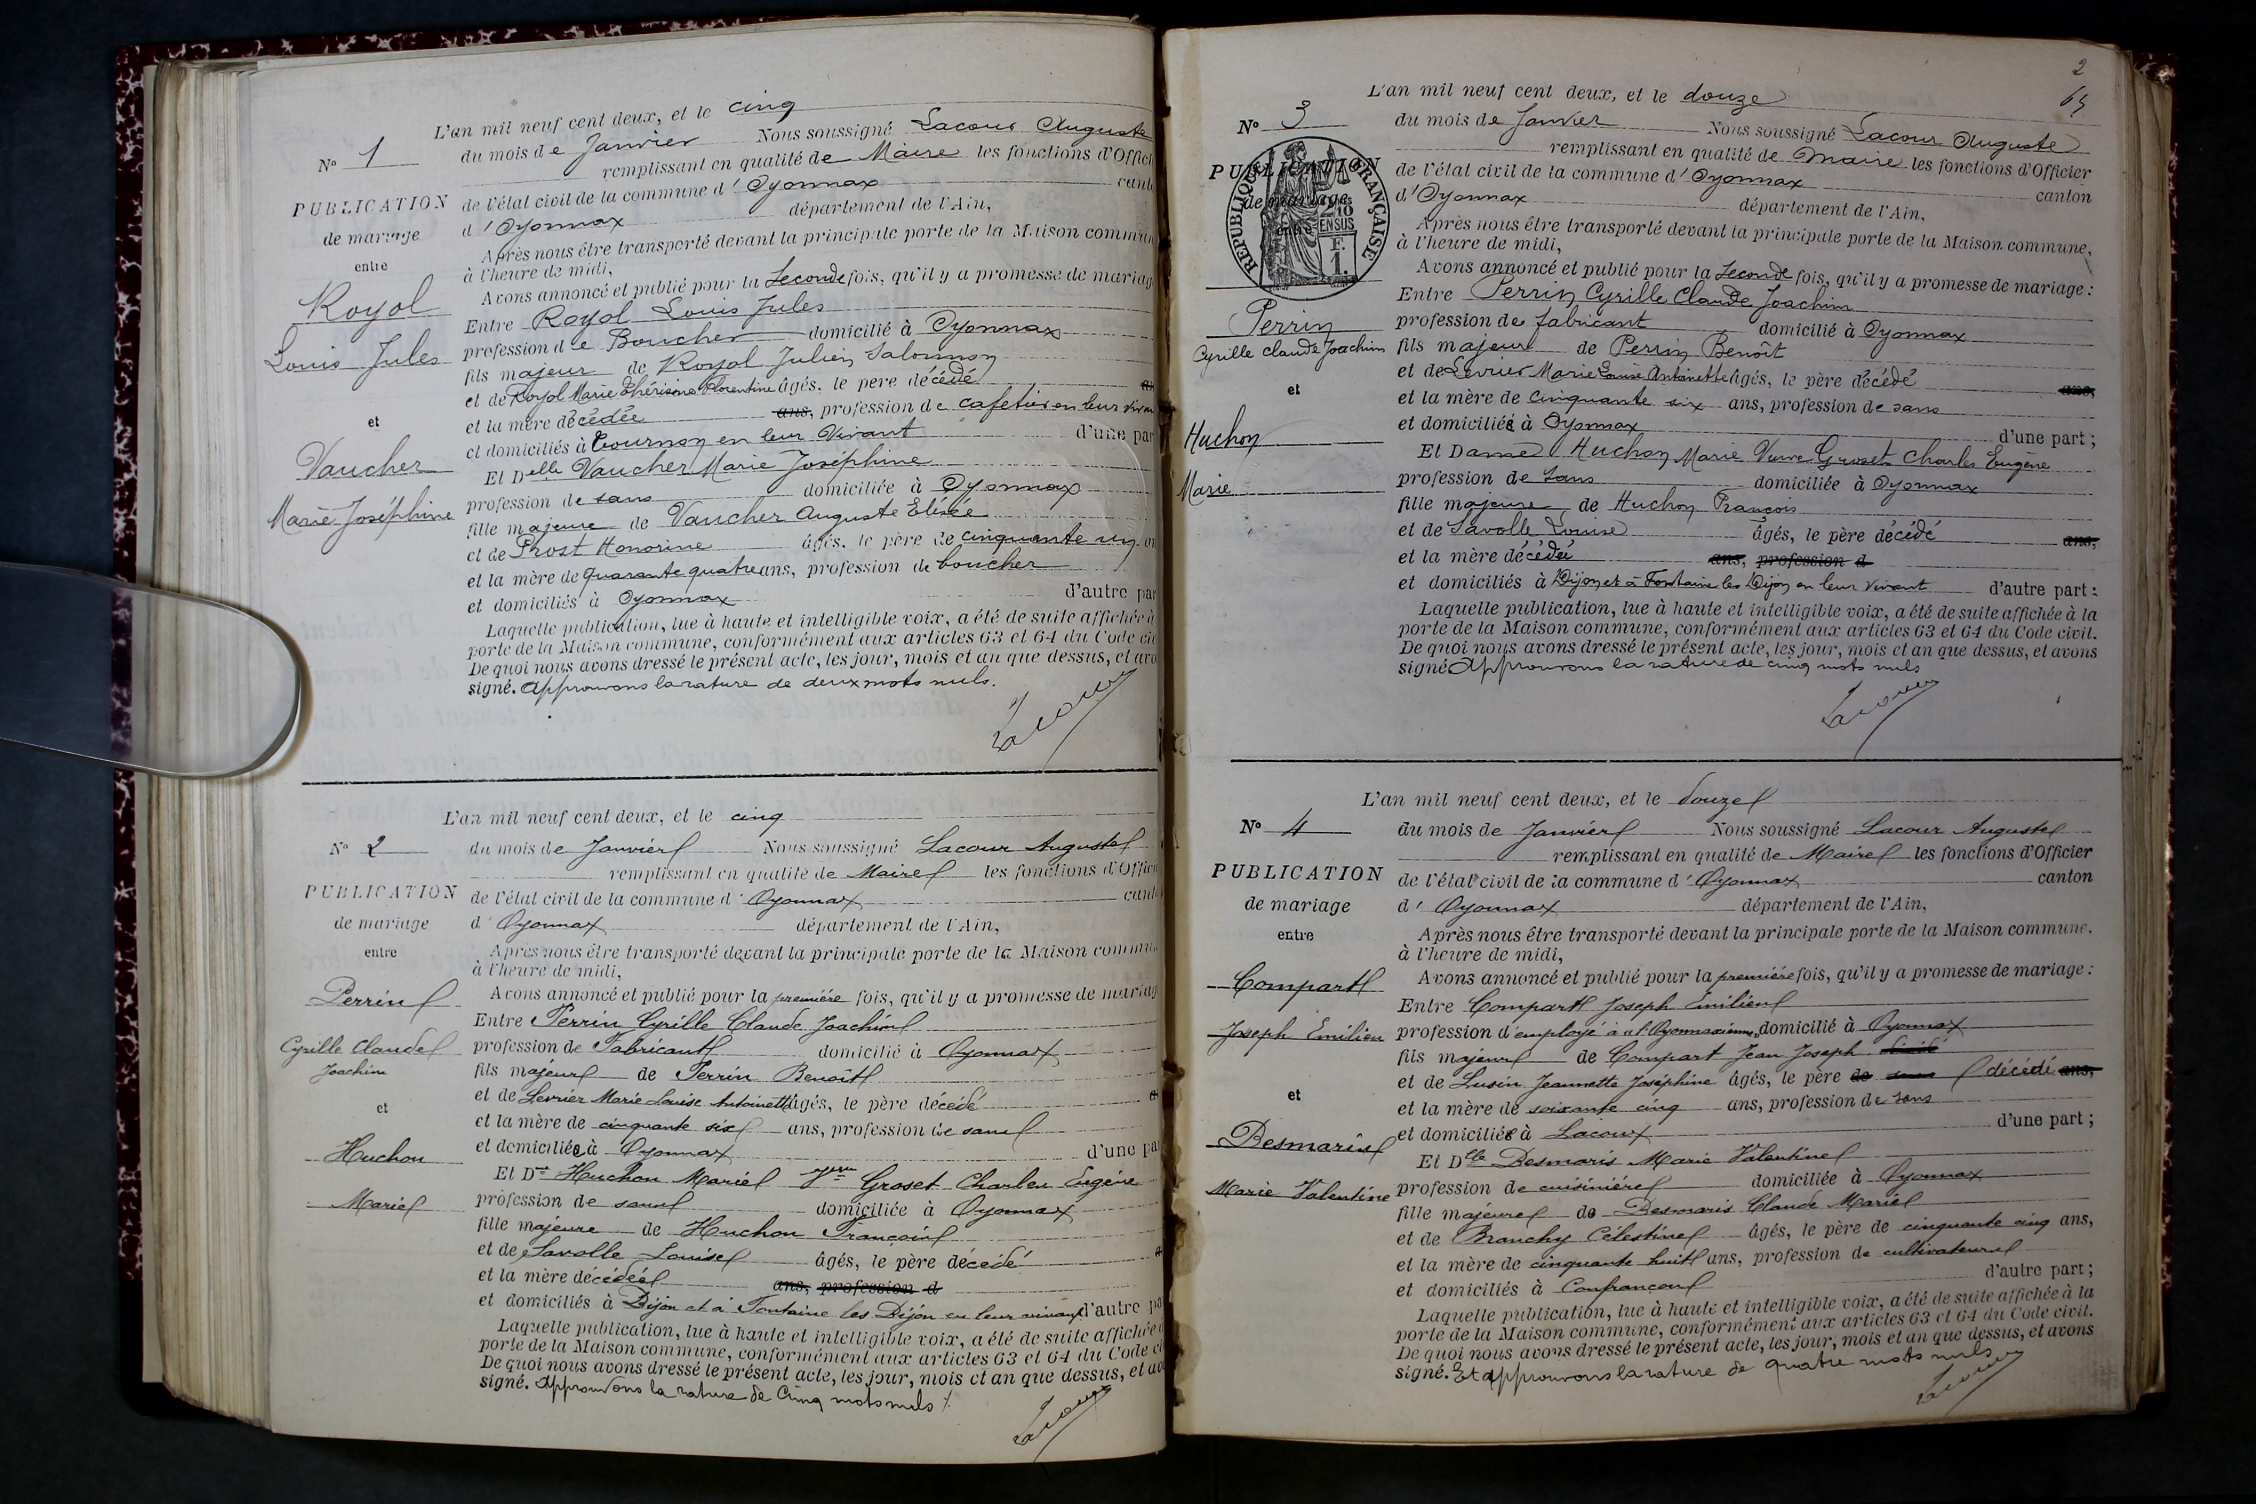 L'an mil neuf cent deux, et le cinq
N° 1
du mois de Janvier Nous soussigné Lacour Auguste
remplissant en qualité de Maire les fonctions d'Offici
PUBLICATION
de l'état civil de la commune d'Oyonnax cant
de mariage
d'Oyonnax département de l'Ain,
entre
Après nous être transporté devant la principale porte de la Maison commun
à l'heure de midi,
Avons annoncé et publié pour la Seconde fois, qu'il y a promesse de mariag
Royol
Louis Jules
Entre Royol Louis Jules
profession de Boucher domicilié à Oyonnax
fils majeur de Royol Julien Salomon
et de Royol Marie Thérèsine Florentine âgés, le père décédé
et
et la mère décédée ans, profession de cafetier en leur vivan
et domiciliés à Tournon en leur Vivant d'une par
Vaucher
Marie Joséphine
Et Delle Vaucher Marie Joséphine
profession de sans domiciliée à Oyonnax
fille majeure de Vaucher Auguste Elisée
et de Prost Honorine âgés, le père de cinquante un
et la mère de quarante quatre ans, profession de boucher
et domiciliés à Oyonnax d'autre par
Laquelle publication, lue à haute et intelligible voix, a été de suite affichée à
porte de la Maison commune, conformément aux articles 63 et 64 du Code ci
De quoi nous avons dressé le présent acte, les jour, mois et an que dessus, et avo
signé. Approuvons la rature de deux mots nuls.
Lacour
L'an mil neuf cent deux, et le cinq
N° 2
du mois de Janvier Nous soussigné Lacour Auguste
remplissant en qualité de Maire les fonctions d'Offici
PUBLICATION
de l'état civil de la commune d'Oyonnax cant
de mariage
d'Oyonnax département de l'Ain,
entre
Après nous être transporté devant la principale porte de la Maison commu
à l'heure de midi,
Perrin
Cyrille Claude
Joachim
Avons annoncé et publié pour la première fois, qu'il y a promesse de mariag
Entre Perrin Cyrille Claude Joachim
profession de Fabricant domicilié à Oyonnax
fils majeur de Perrin Benoît
et de Levrier Marie Louise Antoinette âgés, le père décédé
et
et la mère de cinquante six ans, profession de sans
et domiciliée à Oyonnax d'une pa
Huchon
Marie
Et De Huchon Marie Veuve Groset Charles Eugène
profession de sans domiciliée à Oyonnax
fille majeure de Huchon François
et de Savolle Louise âgés, le père décédé
et la mère décédée ans, profession d
et domiciliés à Dijon et à Fontaine les Dijon en leur vivant d'autre pa
Laquelle publication, lue à haute et intelligible voix, a été de suite affichée
porte de la Maison commune, conformément aux articles 63 et 64 du Code ci
De quoi nous avons dressé le présent acte, les jour, mois et an que dessus, et avo
signé. Approuvons la rature de Cinq mots nuls
Lacour
2
65
L'an mil neuf cent deux, et le douze
N° 3
du mois de Janvier Nous soussigné Lacour Auguste
remplissant en qualité de Maire les fonctions d'Officier
PUBLICATION
de l'état civil de la commune d'Oyonnax canton
de mariage
d'Oyonnax département de l'Ain,
entre
REPUBLIQUE FRANÇAISE
2/10 EN SUS
F.
1.
Après nous être transporté devant la principale porte de la Maison commune,
à l'heure de midi,
Avons annoncé et publié pour la Seconde fois, qu'il y a promesse de mariage :
Perrin
Cyrille Claude Joachim
Entre Perrin Cyrille Claude Joachim
profession de fabricant domicilié à Oyonnax
fils majeur de Perrin Benoît
et de Levrier Marie Louise Antoinette âgés, le père décédé ans,
et
et la mère de cinquante six ans, profession de sans
et domiciliée à Oyonnax d'une part ;
Huchon
Marie
Et Dame Huchon Marie Veuve Groset Charles Eugène
profession de sans domiciliée à Oyonnax
fille majeure de Huchon François
et de Savolle Louise âgés, le père décédé ans,
et la mère décédée ans, profession d
et domiciliés à Dijon et à Fontaine les Dijon en leur vivant d'autre part :
Laquelle publication, lue à haute et intelligible voix, a été de suite affichée à la
porte de la Maison commune, conformément aux articles 63 et 64 du Code civil.
De quoi nous avons dressé le présent acte, les jour, mois et an que dessus, et avons
signé Approuvons la rature de cinq mots nuls
Lacour
L'an mil neuf cent deux, et le douze
N° 4
du mois de Janvier Nous soussigné Lacour Auguste
remplissant en qualité de Maire les fonctions d'Officier
PUBLICATION
de l'état civil de la commune d'Oyonnax canton
de mariage
d'Oyonnax département de l'Ain,
entre
Après nous être transporté devant la principale porte de la Maison commune.
à l'heure de midi,
Compart
Joseph Emilien
Avons annoncé et publié pour la première fois, qu'il y a promesse de mariage :
Entre Compart Joseph Emilien
profession d'employé à l'Oyonnaxienne domicilié à Oyonnax
fils majeur de Compart Jean Joseph décédé
et de Lusin Jeannette Joséphine âgés, le père de sans décédé ans,
et
et la mère de soixante cinq ans, profession de sans
et domiciliée à Lacoux d'une part ;
Desmaris
Marie Valentine
Et Dlle Desmaris Marie Valentine
profession de cuisinière domiciliée à Oyonnax
fille majeure de Desmaris Claude Marie
et de Branchy Célestine âgés, le père de cinquante cinq ans,
et la mère de cinquante huit ans, profession de cultivateurs
et domiciliés à Confrançon d'autre part ;
Laquelle publication, lue à haute et intelligible voix, a été de suite affichée à la
porte de la Maison commune, conformément aux articles 63 et 64 du Code civil.
De quoi nous avons dressé le présent acte, les jour, mois et an que dessus, et avons
signé. Et approuvons la rature de quatre mots nuls
Lacour